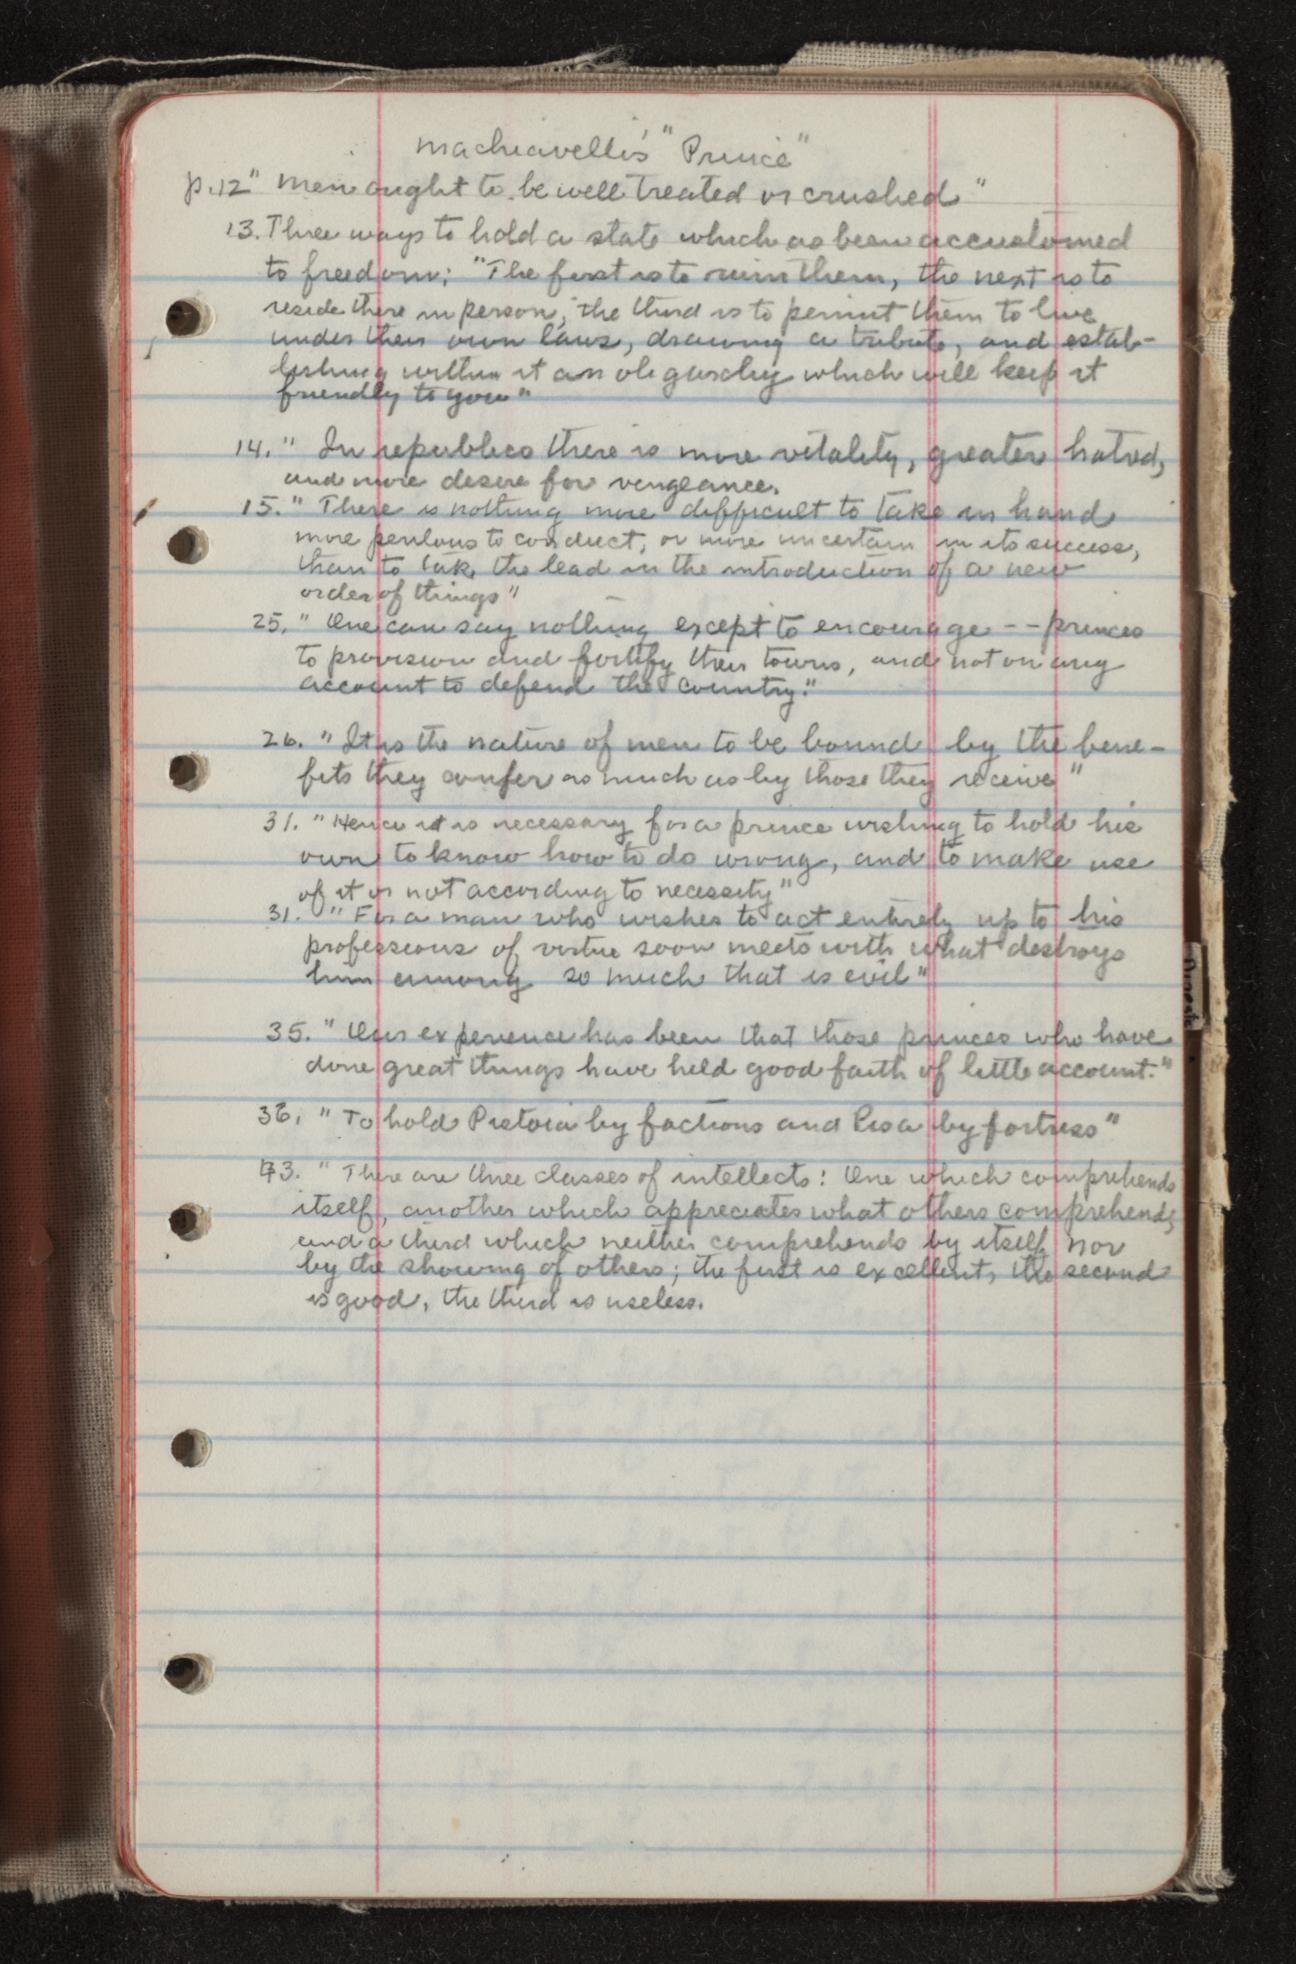 Machiavelli's "Prince"
p.12 " Men ought to be well treated or crushed "
13. Three ways to hold a state which as been accustomed
to freedom: "The first is to ruin them, the next is to
reside there in person, the third is to permit them to live
under their own laws, drawing a tribute, and estab-
lishing within it an oligarchy which will keep it
friendly to you"
14. " In republics there is more vitality, greater hatred,
and more desire for vengeance.
15. " There is nothing more difficult to take in hand
more perilous to conduct, or more uncertain in its success,
than to take the lead in the introduction of a new
order of things"
25. " One can say nothing except to encourage -- princes
to provision and fortify their towns, and not on any
account to defend the country."
26. " It is the nature of men to be bound by the bene-
fits they confer as much as by those they receive"
31. " Hence it is necessary for a prince wishing to hold his
own to know how to do wrong, and to make use
of it or not according to necessity"
31. " For a man who wishes to act entirely up to his
professions of virtue soon meets with what destroys
him among so much that is evil"
35. " Our experience has been that those princes who have
done great things have held good faith of little account."
36. " To hold Pistoia by factions and Pisa by fortress"
43. " There are three classes of intellects: One which comprehends
itself, another which appreciates what others comprehend,
and a third which neither comprehends by itself nor
by the showing of others; the first is excellent, the second
is good, the third is useless.